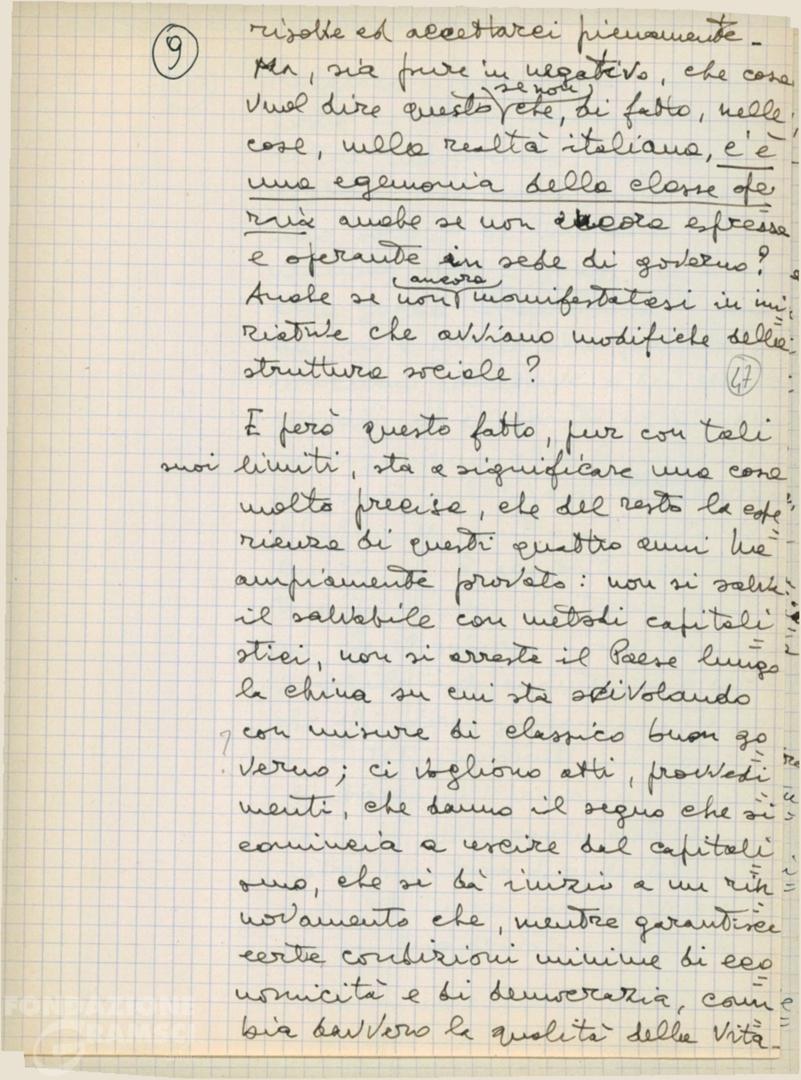 9
risolve ed accettarci pienamente.
Ma, sia pure in negativo, che cosa
vuol dire questo se non che, di fatto, nelle
cose, nella realtà italiana, c'è
una egemonia della classe ope
raia anche se non ancora espressa
e operante in sede di governo?
Anche se non ancora manifestatasi in ini
ziative che avviano modifiche della
struttura sociale?
47
E però questo fatto, pur con tali
suoi limiti, sta a significare una cosa
molto precisa, che del resto la espe
rienza di questi quattro anni ha
ampiamente provato: non si salva
il salvabile con metodi capitali
stici, non si arresta il Paese lungo
la china su cui sta scivolando
con misure di classico buon go
verno; ci vogliono atti, provvedi
menti, che danno il segno che si
comincia a uscire dal capitali
smo, che si dà inizio a un rin
novamento che, mentre garantisce
certe condizioni minime di eco
nomicità e di democrazia, cam
bia davvero la qualità della vita.
FONDAZIONE
GRAMSCI